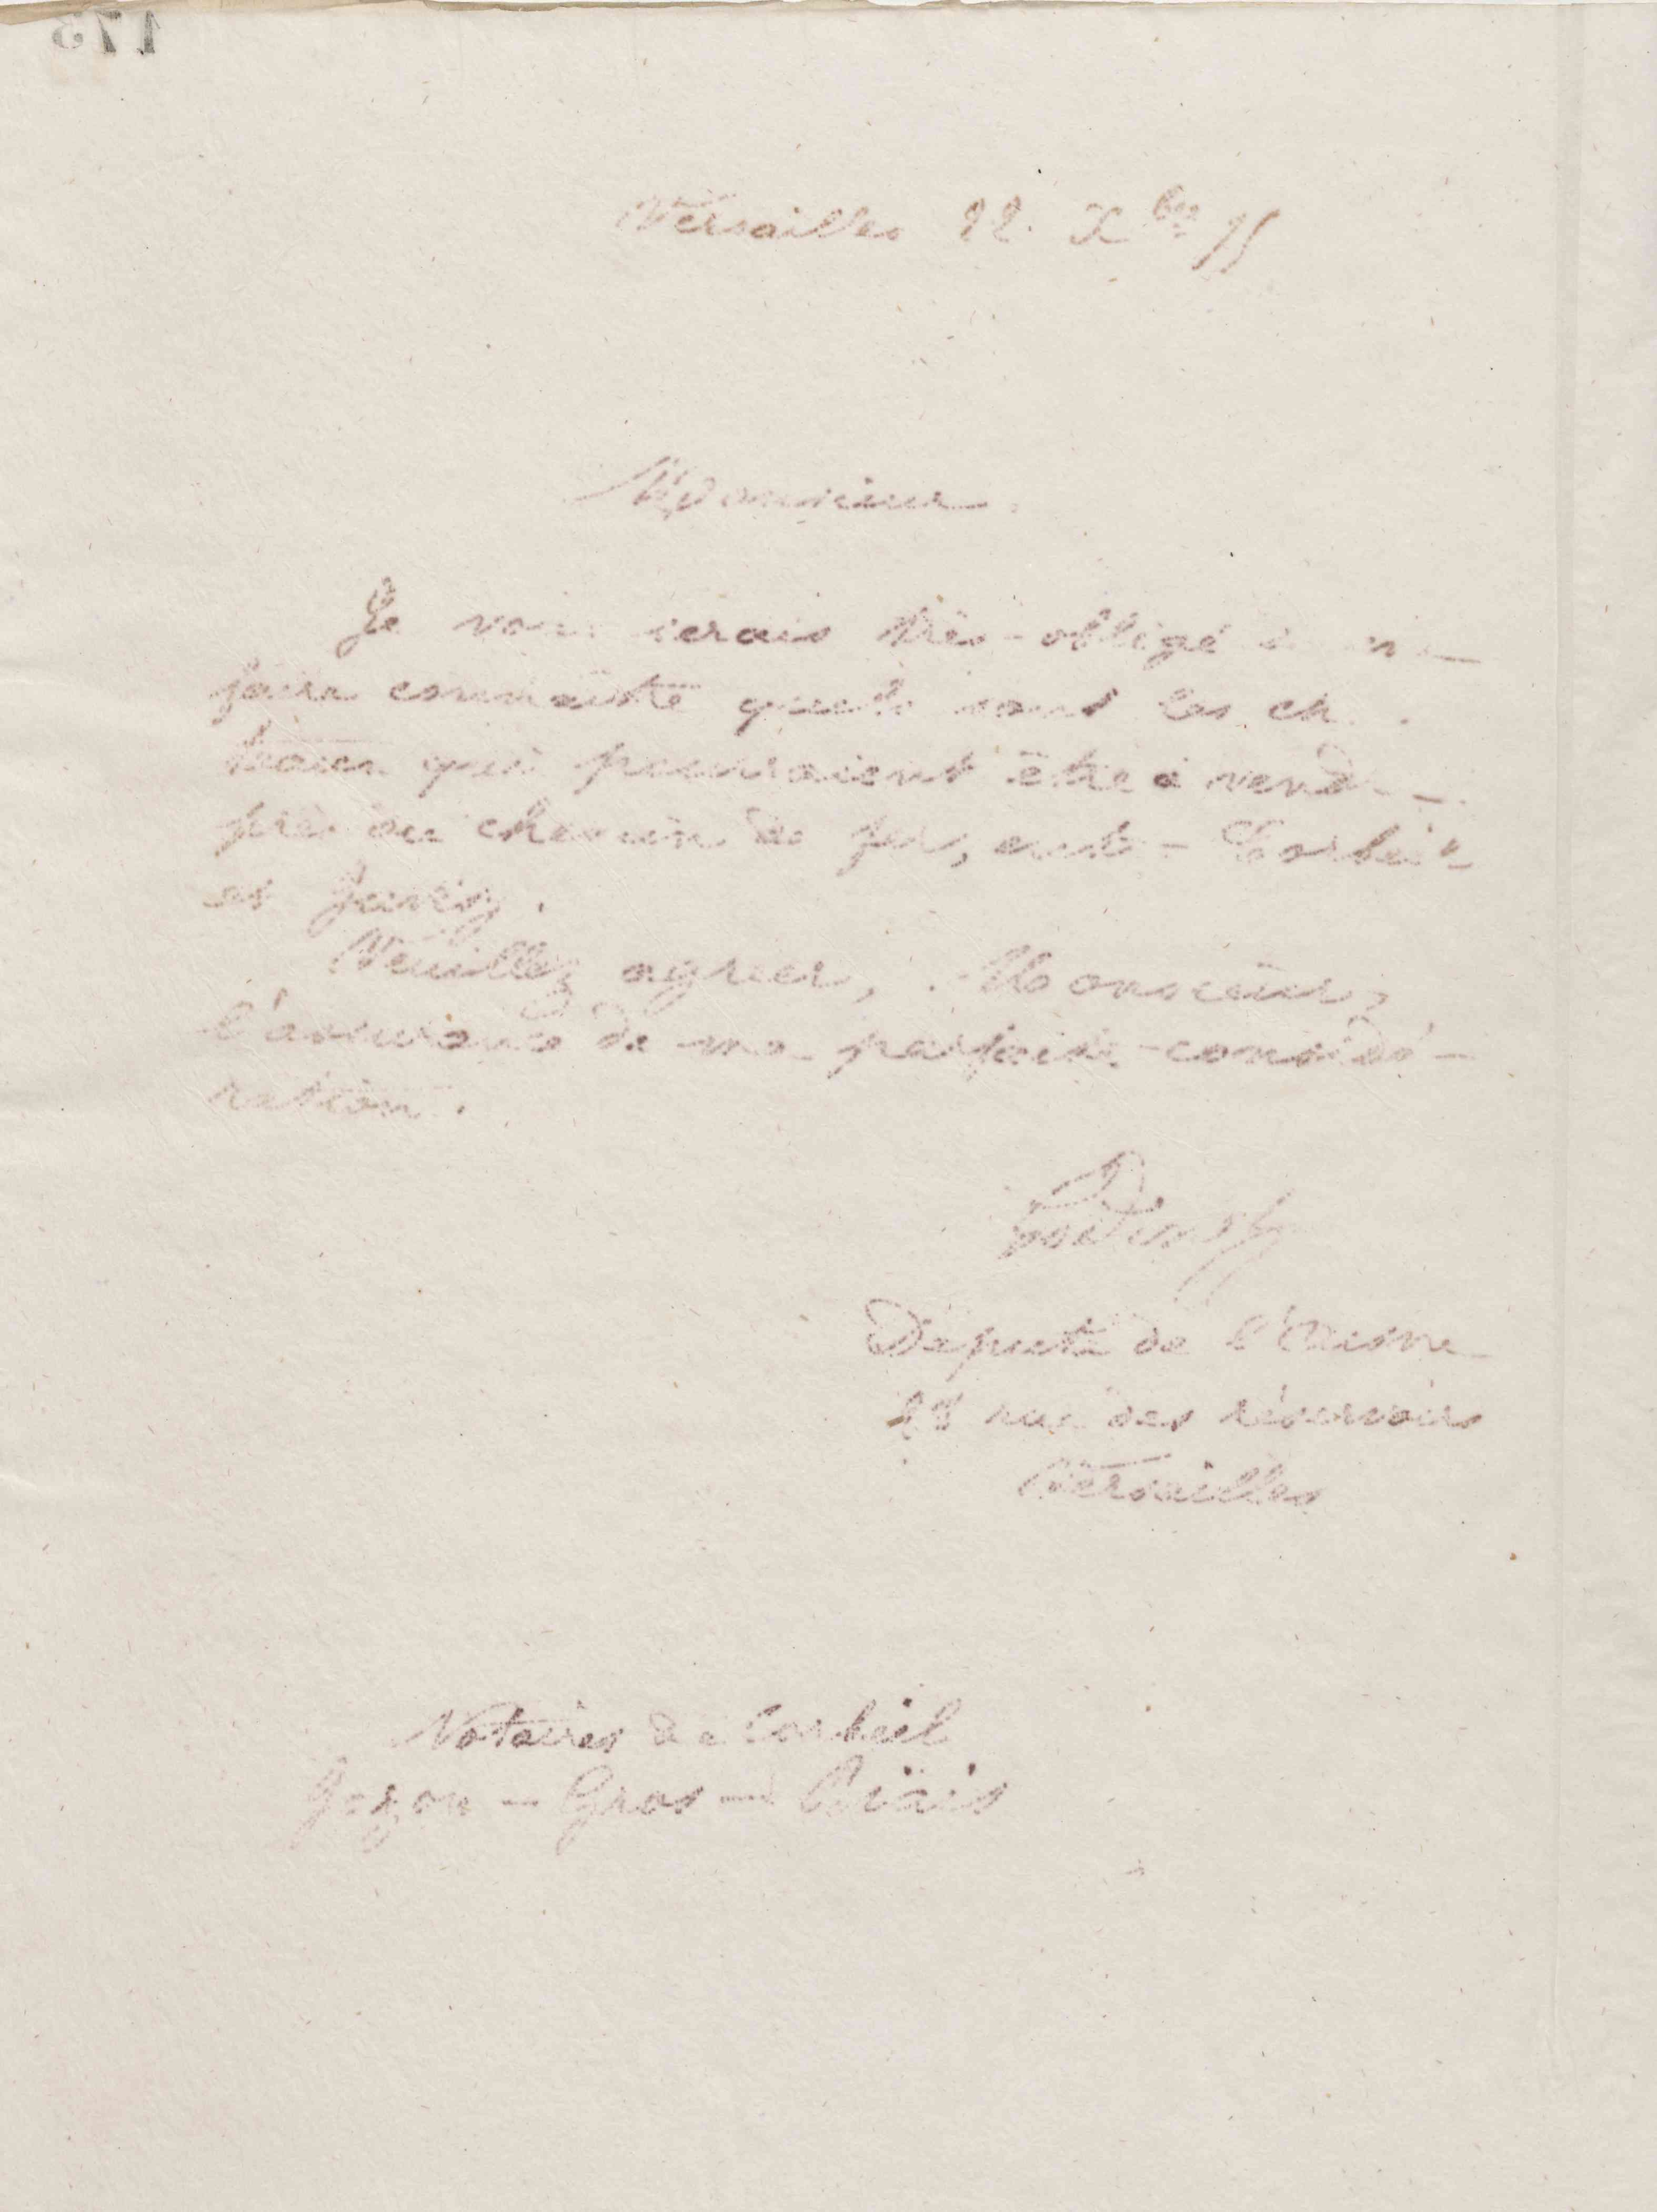 173
Versailles 22 Xbre 75
Monsieur
Je vous serais très-obligé
faire connaître quels sont les ch
teaux qui pourraient être à vend
près du chemin de fer, entre Corbeil
et Juvisy.
Veuillez agréer, Monsieur,
l'assurance de ma parfaite considé-
ration.
Godin
Député de l'Aisne
rue des réservoirs
Versailles
Notaires de Corbeil
Jozon – Gros –